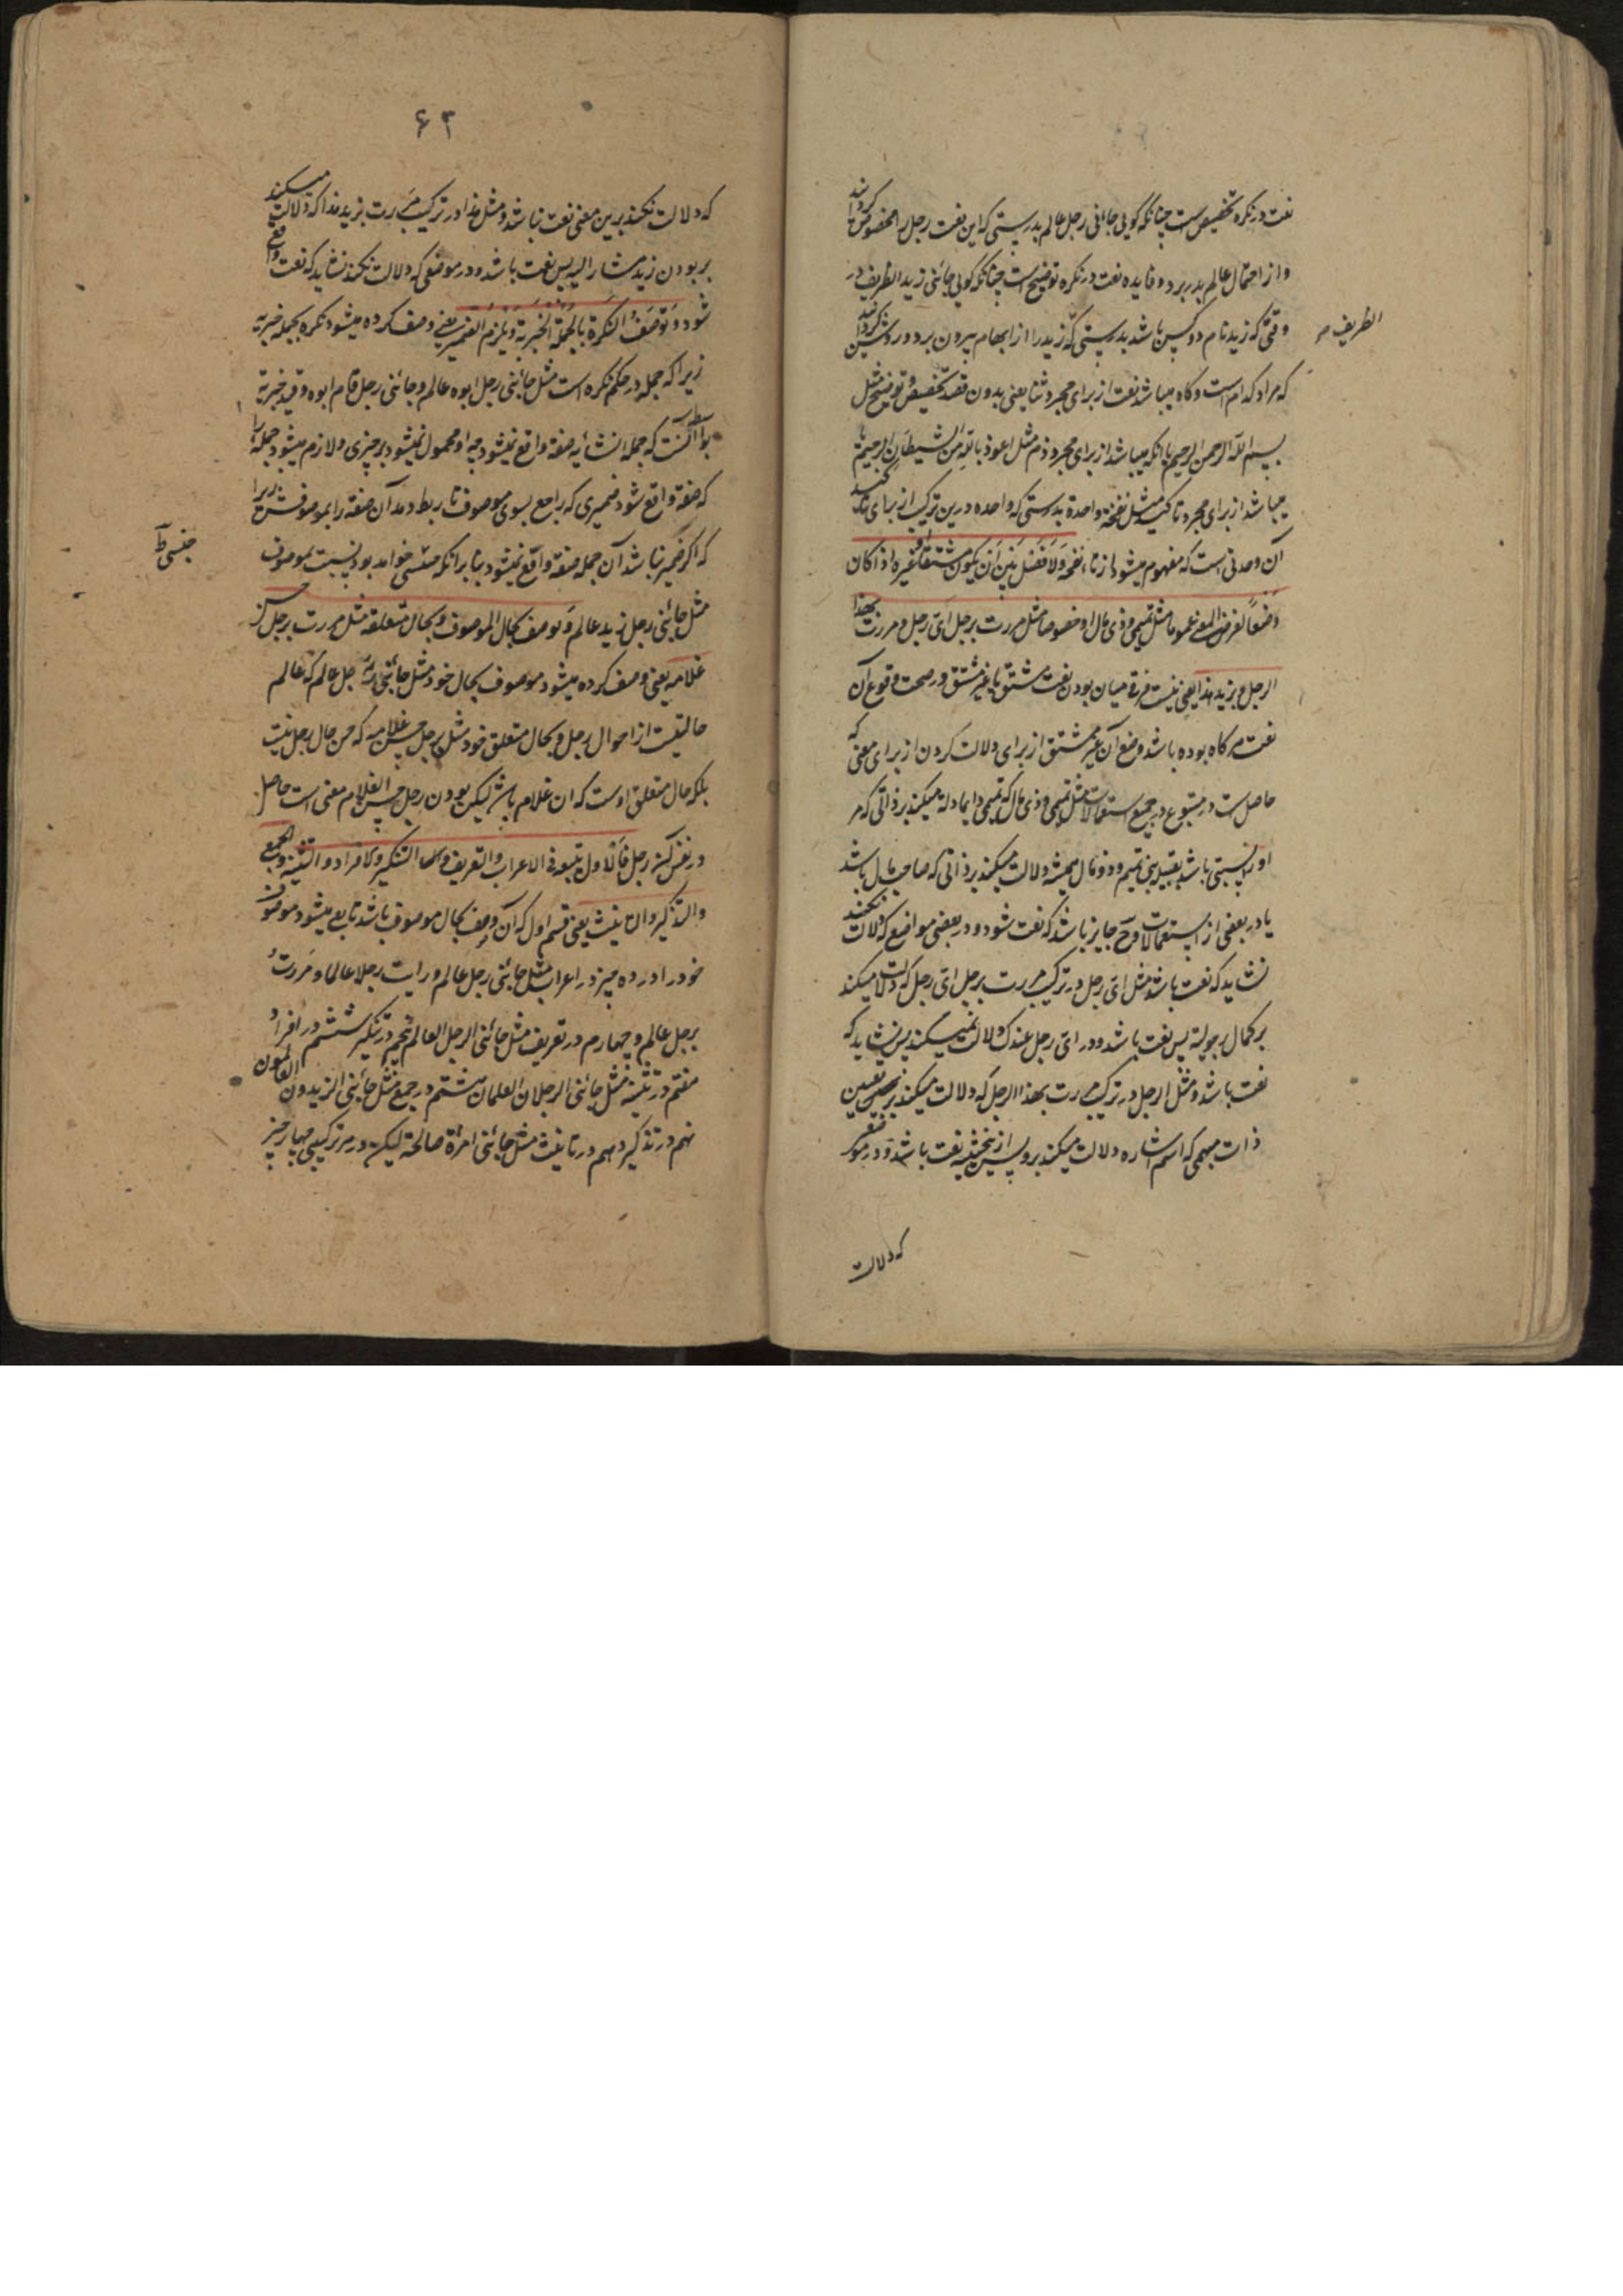 نعت در نکره تخصیص است چنانکه گویی جائنی رجل عالم بدرستی که این نعت رجل را مخصوص کرداند
و از احتمال عالم بدر برد و فایده نعت در نکره توضیح است چنانکه گویی جائنی زید الظریف در
وقتی که زید نام دو کس باشد بدرستی که زید را از ابهام بیرون برد و روشن کرداند
الظریف م
که مراد کدام است و کاه میباشد نعت از برای مجرد ثنا یعنی بدون قصد تخصیص و توضیح مثل
بسم الله الرحمن الرحیم یا آنکه میباشد از برای مجرد ذم مثل اعوذ بالله من الشیطان الرجیم یا
میباشد از برای مجرد تاکید مثل نفخة واحدة بدرستی که واحده درین ترکیب از برای تاکید
آن وحدتی است که مفهوم میشود از تاء نفخة ولا فصل بین ان یکون مشتقا او غیره اذا کان
وضعا لغرض المعنی عموما مثل تمیمی و ذی مال او خصوصا مثل مررت برجل ای رجل و مررت بهذا
الرجل و بزید هذا یعنی نیست فرقی میان بودن نعت مشتق یا غیر مشتق در صحت وقوع آن
نعت هر کاه بوده باشد وضع آن غیر مشتق از برای دلالت کردن از برای معنی که
حاصل است در متبوع در جمیع استعمالات مثل تمیمی و ذی مال که تمیمی دایما دلالت میکند بر ذاتی که مر
او را نسبتی باشد بقبیله بنی تمیم و ذو مال همیشه دلالت میکند بر ذاتی که صاحب مال باشد
یا در بعضی از استعمالات و ح جایز باشد که نعت شود و در بعضی مواضع که دلالت نکند
نشاید که نعت باشد مثل ای رجل در ترکیب مررت برجل ای رجل که دلالت میکند
بر کمال رجولیة پس نعت باشد و در ای رجل عندک دلالت نمیکند پس نشاید که
نعت باشد و مثل الرجل در ترکیب مررت بهذا الرجل که دلالت میکند بر تعیین
ذات مبهمی که اسم اشاره دلالت میکند برو پس ازین حیثیت نعت باشد و در موضعی
که دلالت
۶۳
که دلالت نکند برین معنی نعت نباشد و مثل هذا در ترکیب مررت بزید هذا که دلالت میکند
بر بودن زید مشار الیه پس نعت باشد و در موضعی که دلالت نکند نشاید که نعت واقع
شود و توصف النکرة بالجملة الخبریة و یلزم الضمیر یعنی وصف کرده میشود نکره بجمله خبریه
زیرا که جمله در حکم نکره است مثل جائنی رجل ابوه عالم و جائنی رجل قام ابوه و قید خبریه
که جمله انشائیه صفة واقع نمیشود چه او محمول نمیشود بر چیزی و لازم میشود جمله را
که صفة واقع شود ضمیری که راجع بسوی موصوف تا ربط دهد آن صفة را بموصوفش زیرا
که اگر ضمیر نباشد آن جمله صفة واقع نمیشود بنابر آنکه اجنبی خواهد بود بنسبت بموصوف
مثل جائنی رجل زید عالم و توصف بحال الموصوف و بحال متعلقه مثل مررت برجل حسن
غلامه یعنی وصف کرده میشود موصوف بحال خود مثل جائنی رجل عالم که عالم
حالتیست از احوال رجل و بحال متعلق خود مثل برجل حسن غلامه که حسن حال رجل نیست
بلکه حال متعلق اوست که ان غلام باشد لیکن بودن رجل حسن الغلام معنی است حاصل
در نفس رجل فالاول یتبعه فی الاعراب والتعریف والتنکیر والافراد والتثنیة والجمع
والتذکیر والتانیث یعنی قسم اول که آن وصف بحال موصوف باشد تابع میشود موصوف
خود را در ده چیز در اعراب مثل جائنی رجل عالم و رایت رجلا عالما و مررت
برجل عالم و چهارم در تعریف مثل جائنی الرجل العالم پنجم در تنکیر ششم در افراد
هفتم در تثنیه مثل جائنی الرجلان العالمان هشتم در جمع مثل جائنی الزیدون العالمون
نهم در تذکیر دهم در تانیث مثل جائنی امرأة صالحة لیکن در هر ترکیبی چهار چیز